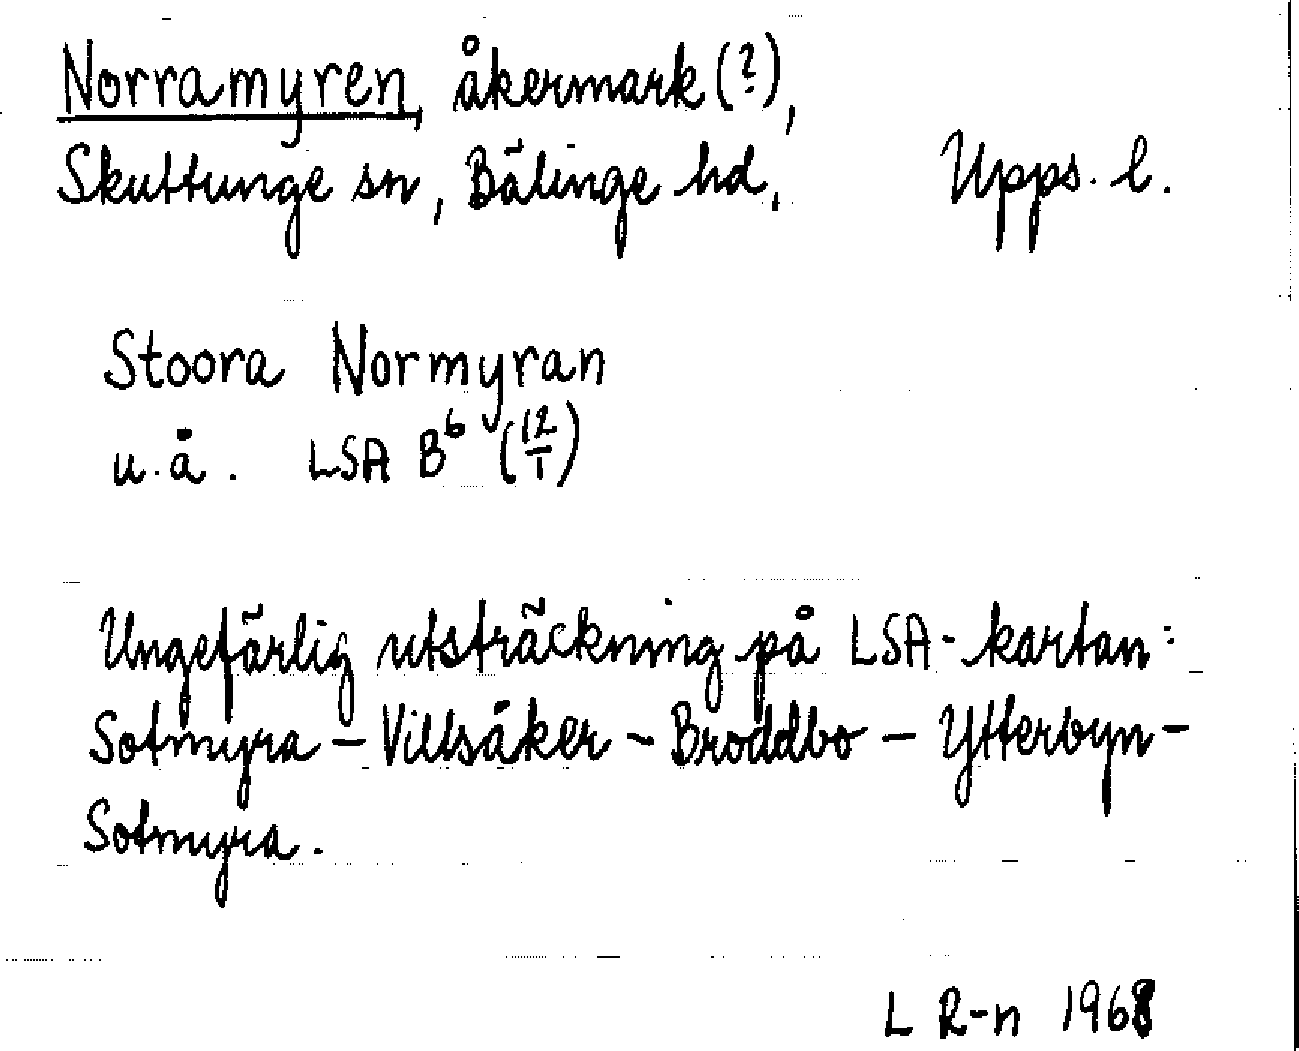 Norramyren, åkermark (?),
Skuttunge sn, Bälinge hd, Upps. l.
Stoora Normyran
u.å. LSA B⁶ (12/1)
Ungefärlig utsträckning på LSA-kartan:
Sotmyra – Villsåker – Broddbo – Ytterbyn –
Sotmyra.
L R-n 1968